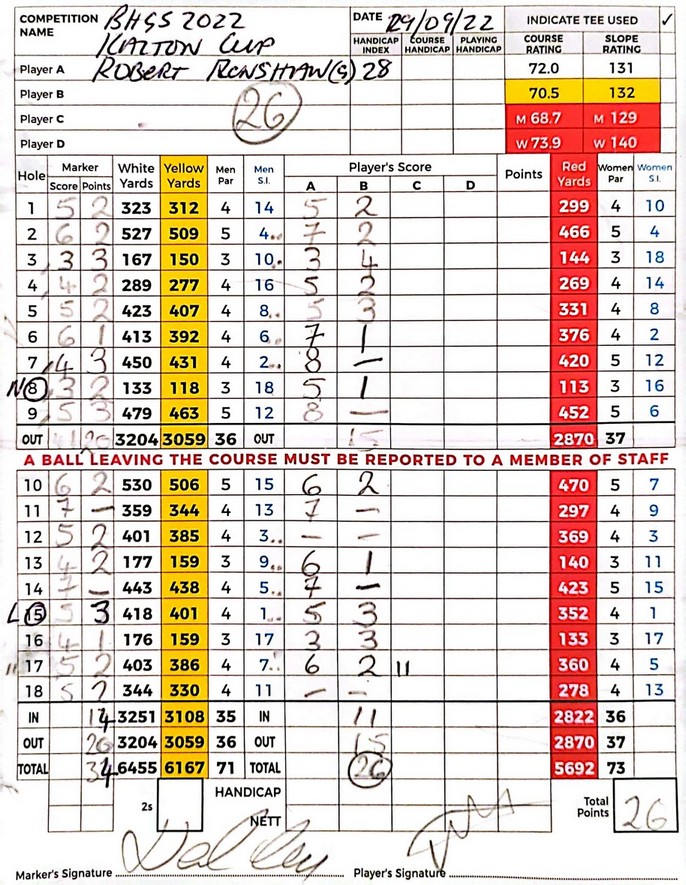 COMPETITION NAME BHGS 2022 DATE 29/09/22 INDICATE TEE USED ✓
KALTON CUP HANDICAP INDEX COURSE HANDICAP PLAYING HANDICAP COURSE RATING SLOPE RATING
Player A ROBERT RENSHAW(G) 28 72.0 131
Player B 70.5 132
Player C 26 M 68.7 M 129
Player D W 73.9 W 140
Hole Marker White Yards Yellow Yards Men Par Men S.I. Player's Score Points Red Yards Women Par Women S.I.
Score Points A B C D
1 5 2 323 312 4 14 5 2 299 4 10
2 6 2 527 509 5 4.. 7 2 466 5 4
3 3 3 167 150 3 10. 3 4 144 3 18
4 4 2 289 277 4 16 5 2 269 4 14
5 5 2 423 407 4 8.. 5 3 331 4 8
6 6 1 413 392 4 6.. 7 1 376 4 2
7 4 3 450 431 4 2.. 8 – 420 5 12
N 8 3 2 133 118 3 18 5 1 113 3 16
9 5 3 479 463 5 12 8 – 452 5 6
OUT 41 20 3204 3059 36 OUT 15 2870 37
A BALL LEAVING THE COURSE MUST BE REPORTED TO A MEMBER OF STAFF
10 6 2 530 506 5 15 6 2 470 5 7
11 7 – 359 344 4 13 7 – 297 4 9
12 5 2 401 385 4 3.. – – 369 4 3
13 4 2 177 159 3 9.. 6 1 140 3 11
14 7 – 443 438 4 5.. 7 – 423 5 15
L 15 5 3 418 401 4 1.. 5 3 352 4 1
16 4 1 176 159 3 17 3 3 133 3 17
17 5 2 403 386 4 7.. 6 2 11 360 4 5
18 5 2 344 330 4 11 – – 278 4 13
IN 14 3251 3108 35 IN 11 2822 36
OUT 20 3204 3059 36 OUT 15 2870 37
TOTAL 34 6455 6167 71 TOTAL 26 5692 73
2s HANDICAP Total Points 26
NETT
Marker's Signature Player's Signature